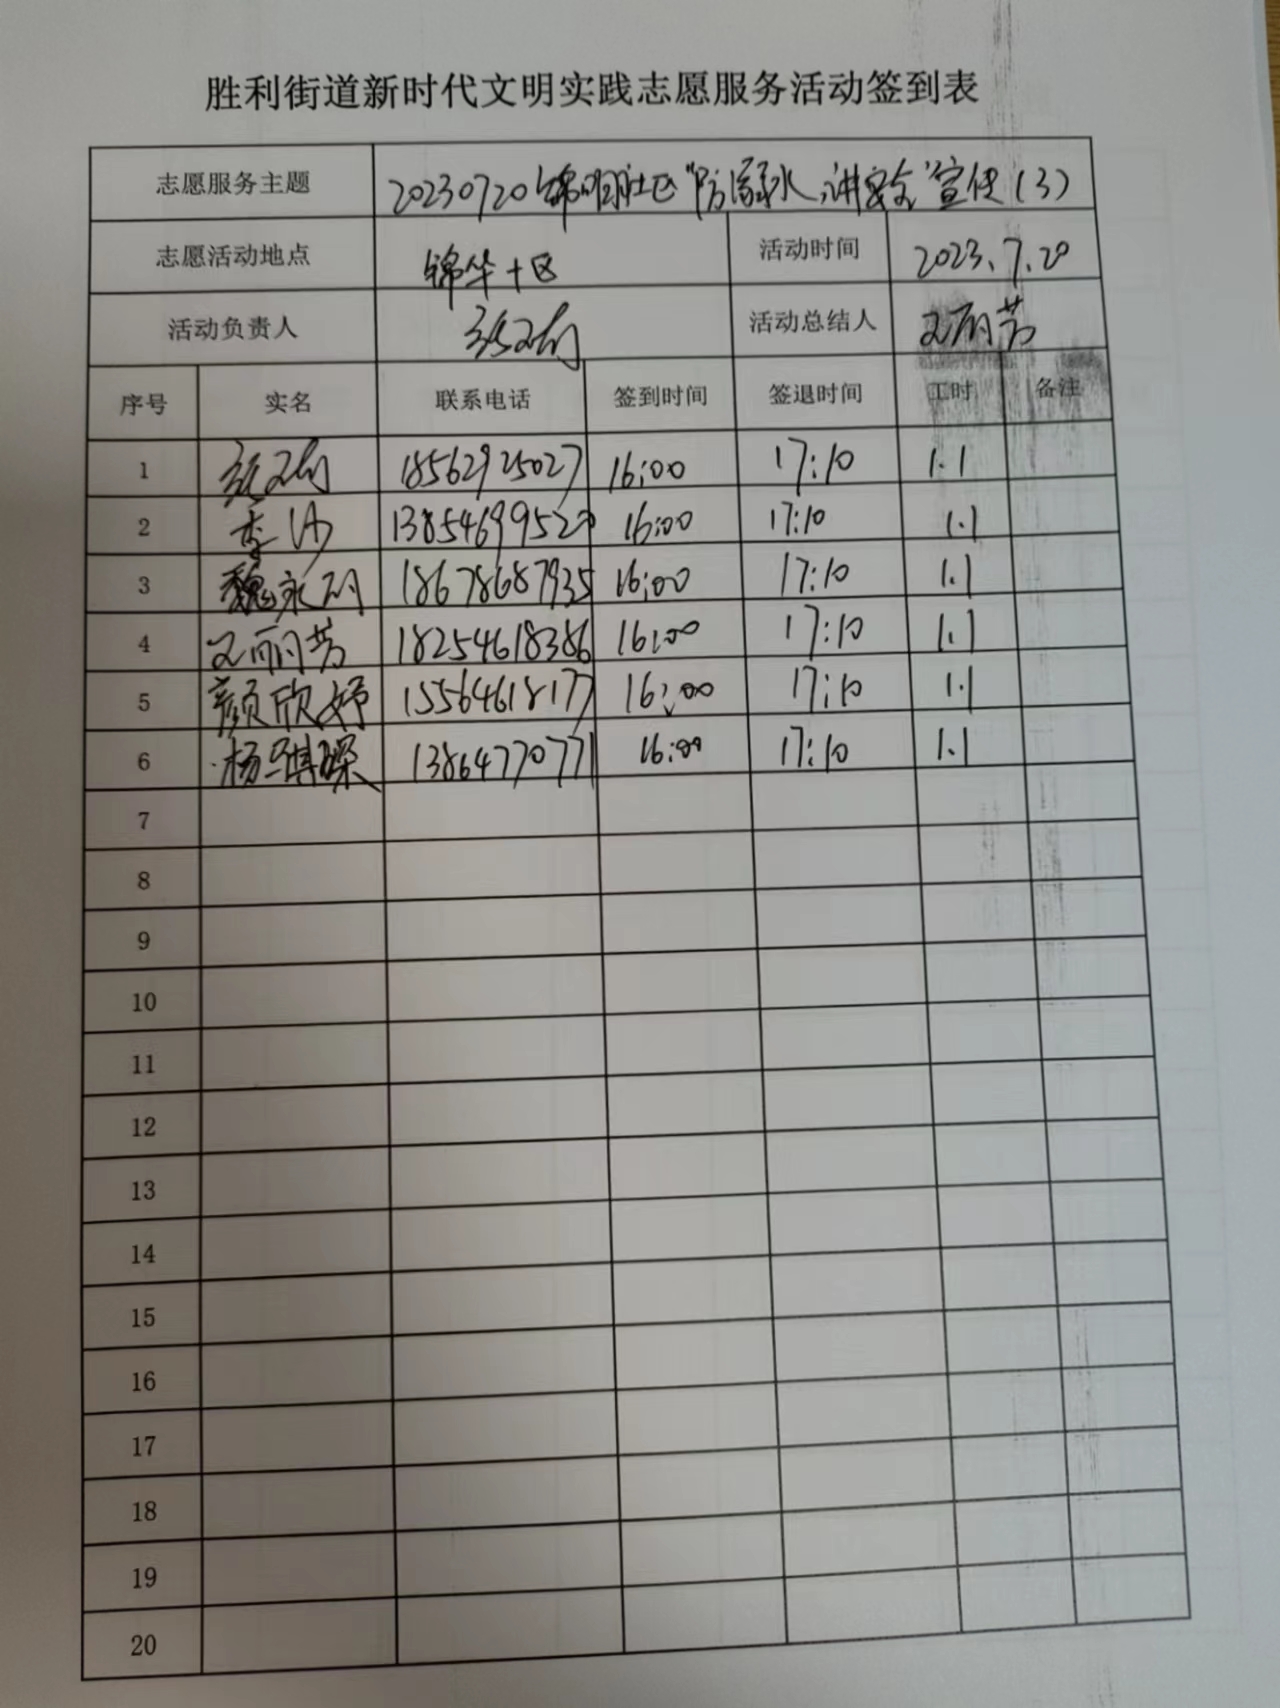 胜利街道新时代文明实践志愿服务活动签到表
志愿服务主题 20230720锦明社区"防溺水,讲安全"宣传(3)
志愿活动地点 锦华十区 活动时间 2023.7.20
活动负责人 活动总结人 王丽芳
序号 实名 联系电话 签到时间 签退时间 工时 备注
1 18562925027 16:00 17:10 1.1
2 李沙 13854699520 16:00 17:10 1.1
3 魏永丽 18678687935 16:00 17:10 1.1
4 王丽芳 18254618386 16:00 17:10 1.1
5 颜欣妤 15564618177 16:00 17:10 1.1
6 杨 13864770771 16:00 17:10 1.1
7
8
9
10
11
12
13
14
15
16
17
18
19
20